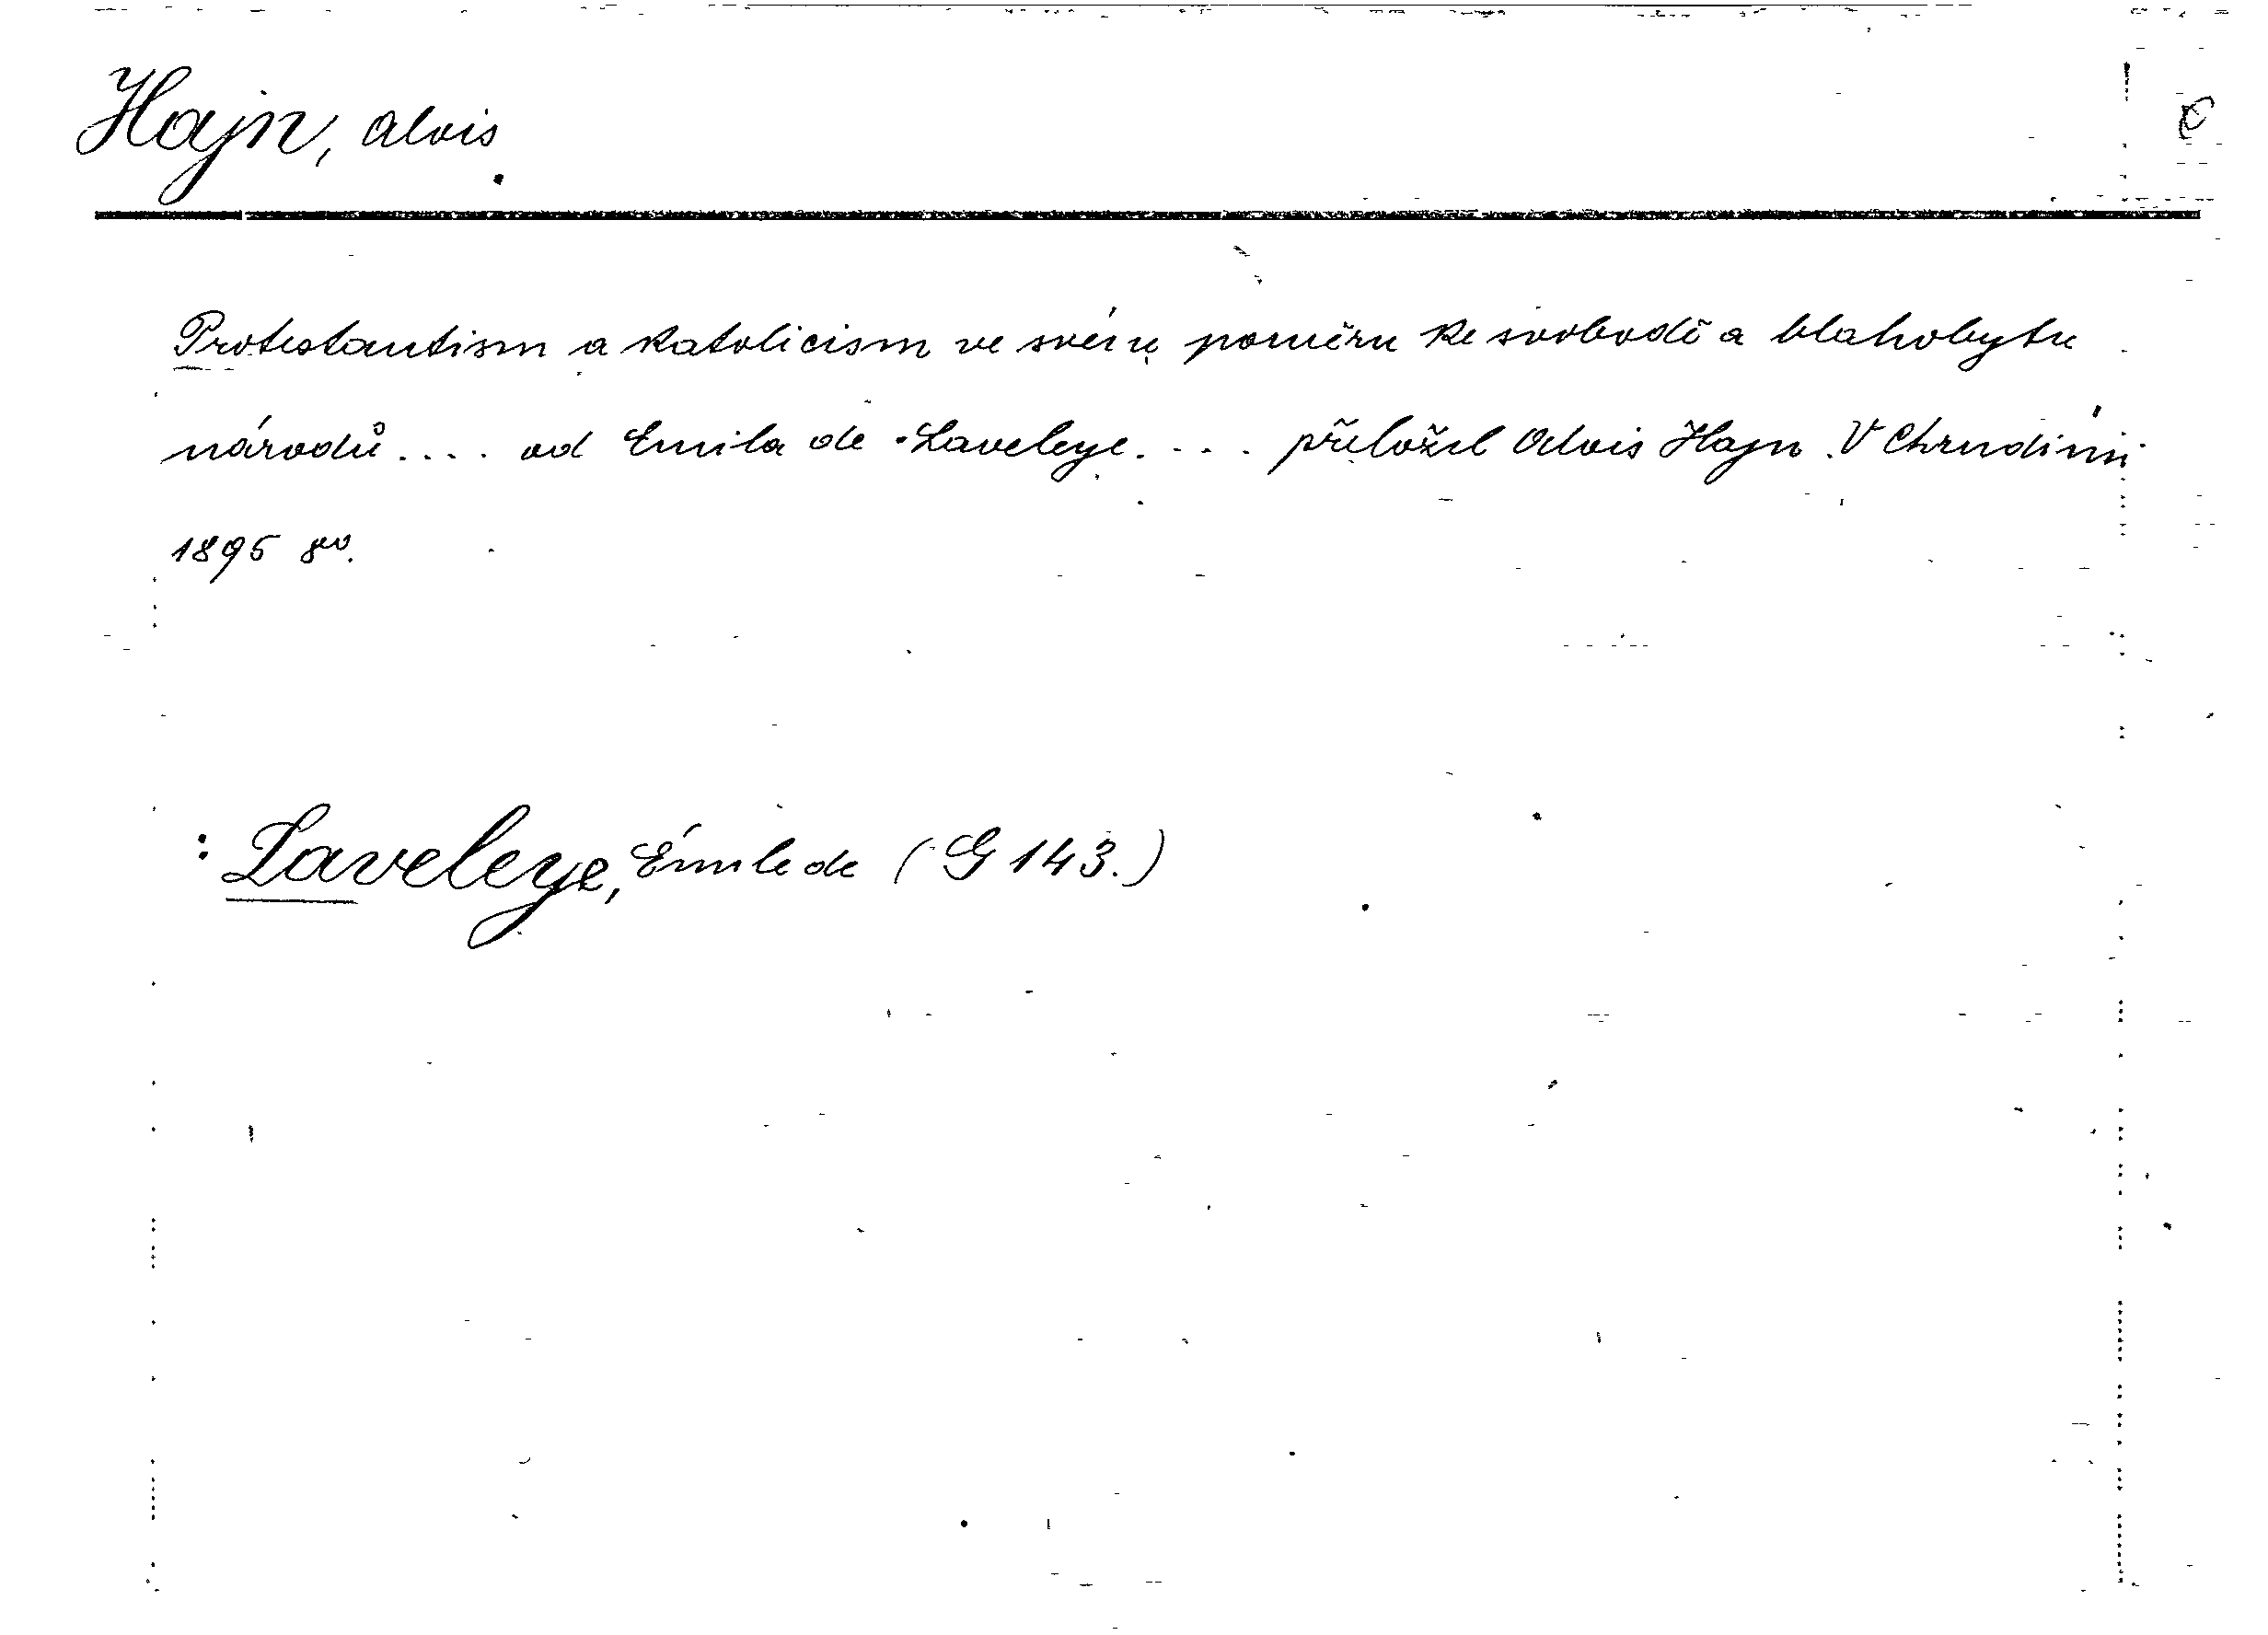 Hajn, Alois
Protestantism a katolicism ve svém poměru ke svobodě a blahobytu
národů .... od Emila de Laveleye .... přeložil Alois Hajn. V Chrudimi
1895 8vo.
: Laveleye, Émile de (G 143.)